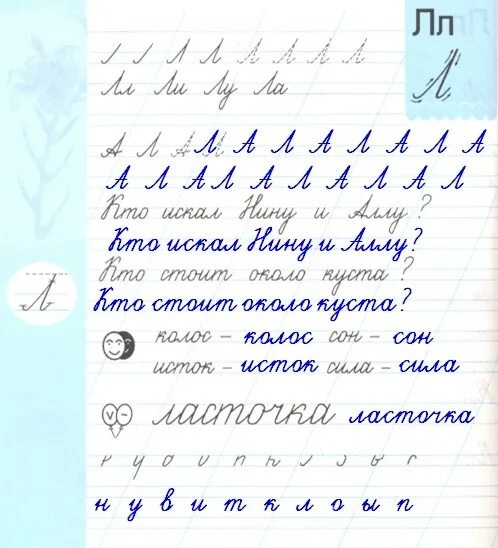 Лл
Л
Л Л Л Л Л Л
Лл Ли Лу Ла
А Л А Л А Л А Л А Л А
А Л АЛ А Л А Л А Л
Кто искал Нину и Аллу?
Кто искал Нину и Аллу?
Кто стоит около куста?
Л
Кто стоит около куста?
колос – колос сон – сон
исток – исток сила – сила
ласточка ласточка
н у в и т к л о ы п